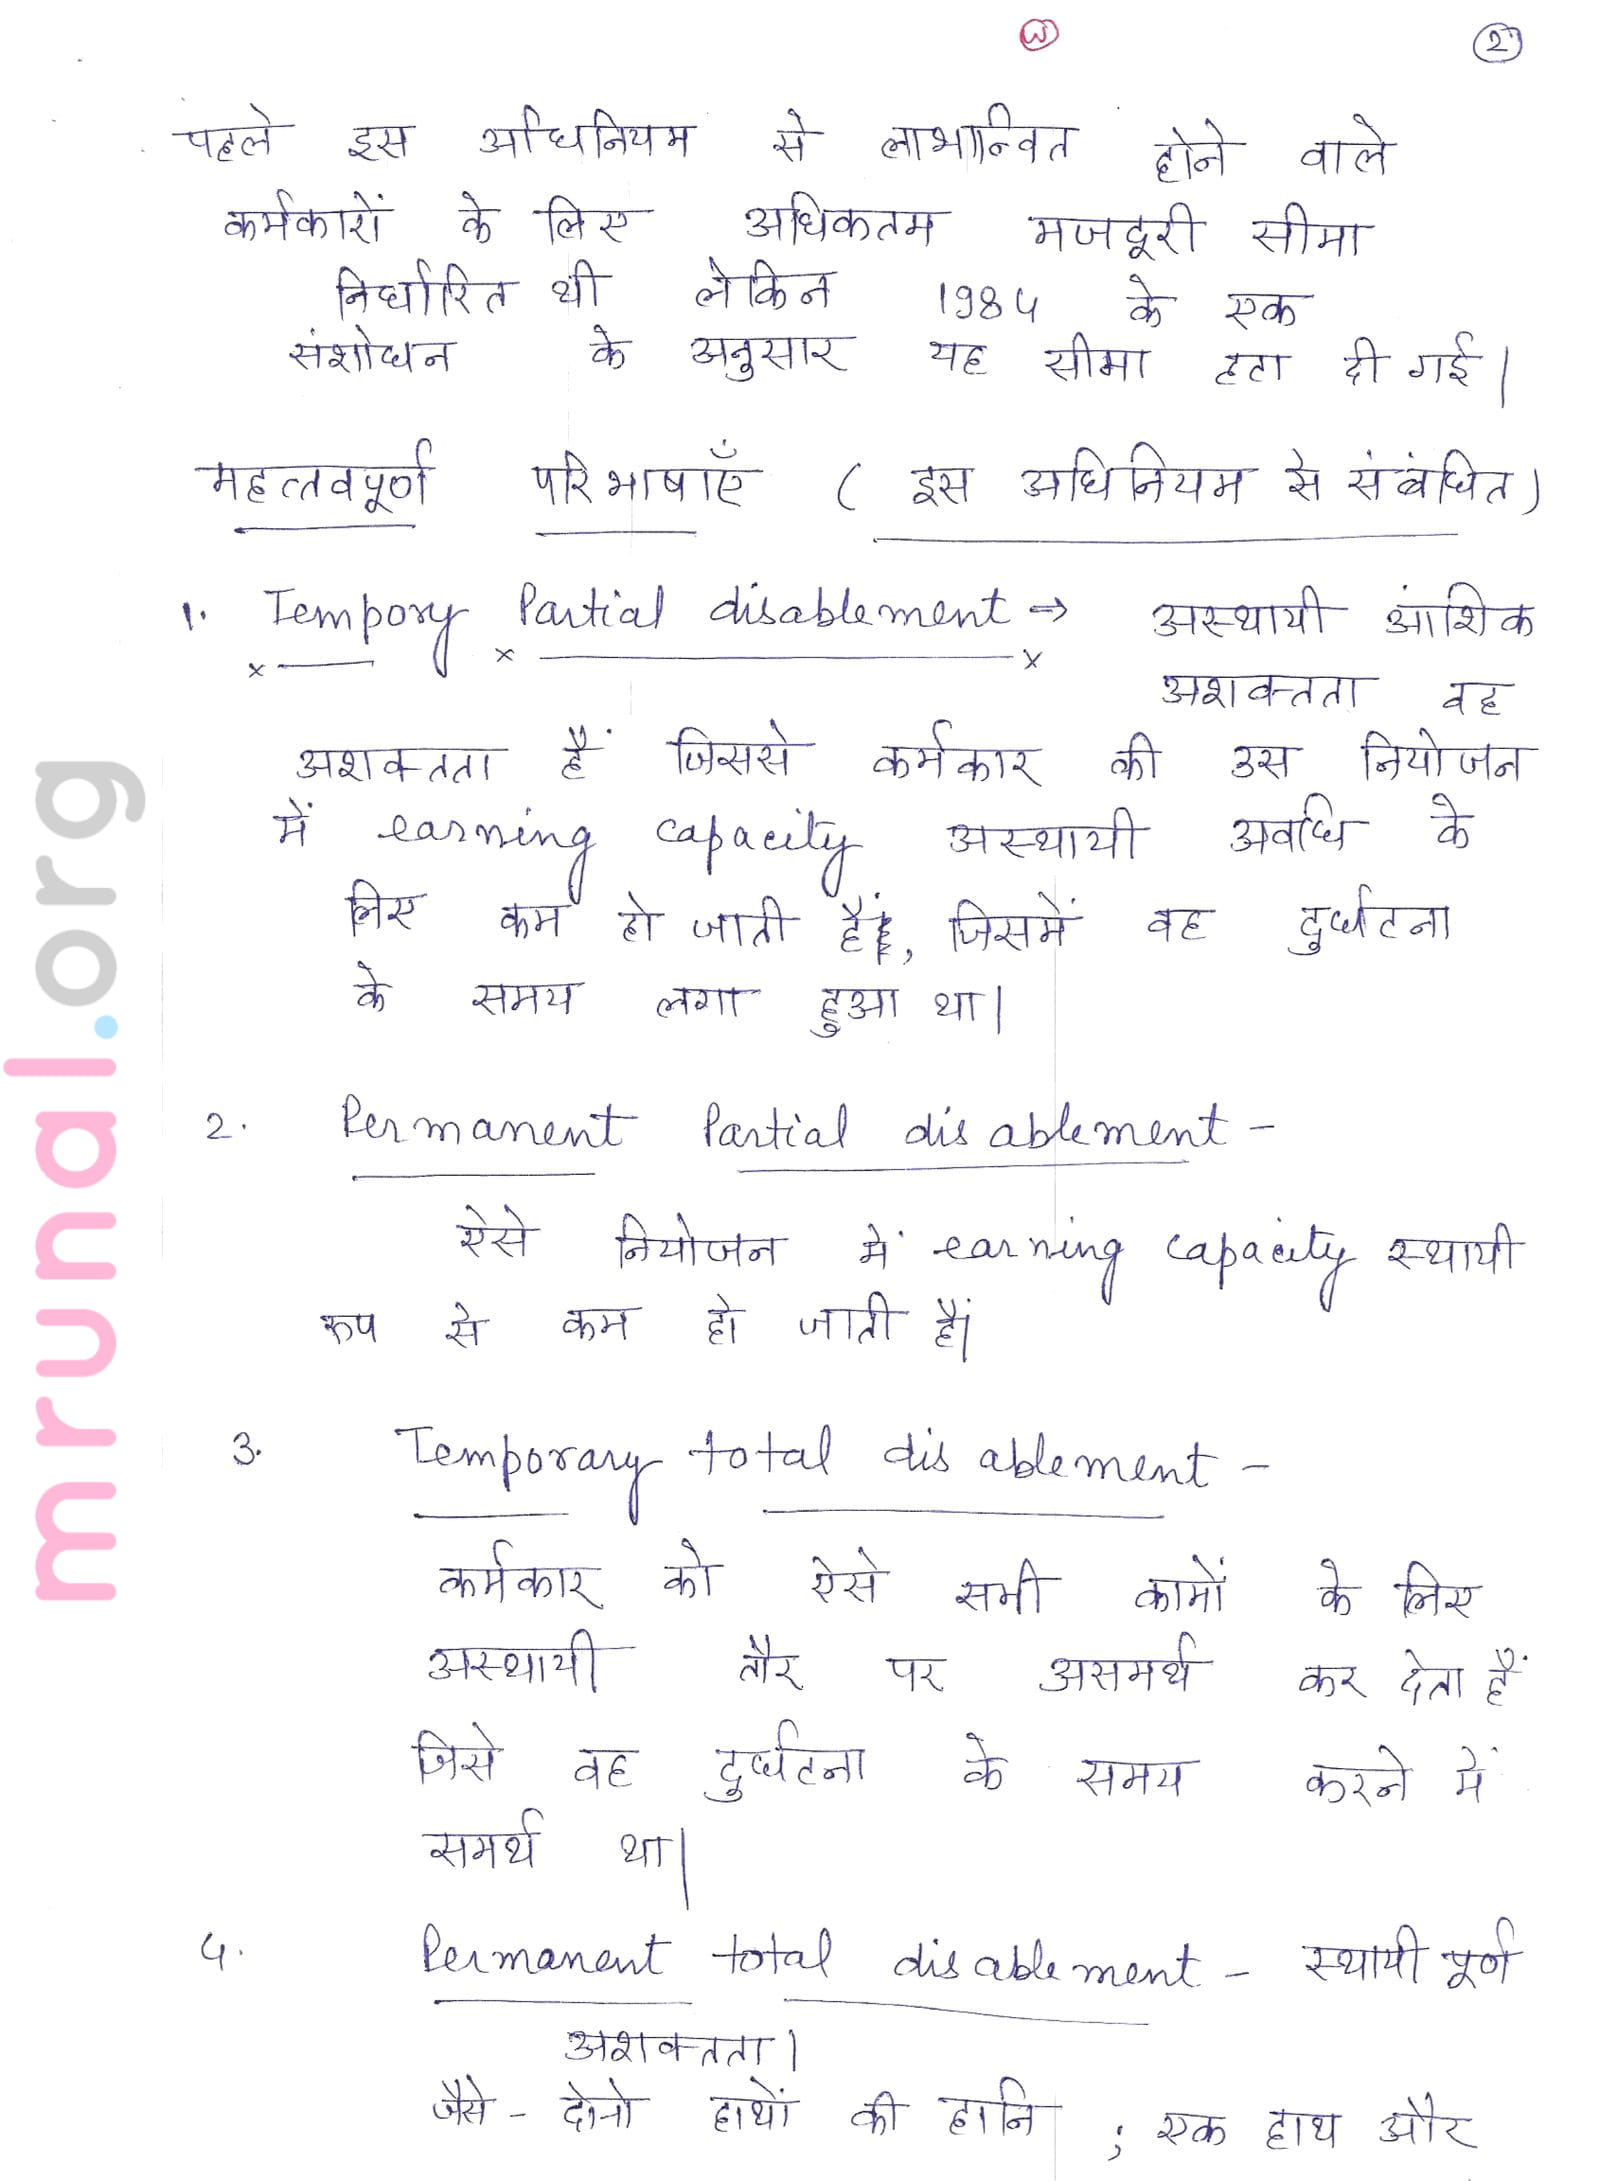 W
2
पहले इस अधिनियम से लाभान्वित होने वाले
कर्मकारों के लिए अधिकतम मजदूरी सीमा
निर्धारित थी लेकिन 1984 के एक
संशोधन के अनुसार यह सीमा हटा दी गई।
महत्तवपूर्ण परिभाषाएँ ( इस अधिनियम से संबंधित)
1. Tempory Partial disablement ⇒ अस्थायी आंशिक
अशक्तता वह
अशक्तता हैं जिससे कर्मकार की उस नियोजन
में earning capacity अस्थायी अवधि के
लिए कम हो जाती हैं, जिसमें वह दुर्घटना
के समय लगा हुआ था।
2. Permanent Partial disablement -
ऐसे नियोजन में earning capacity स्थायी
रूप से कम हो जाती हैं।
3. Temporary total disablement -
कर्मकार को ऐसे सभी कामों के लिए
अस्थायी तौर पर असमर्थ कर देता हैं
जिसे वह दुर्घटना के समय करने में
समर्थ था।
4. Permanent total disablement - स्थायी पूर्ण
अशक्तता।
जैसे - दोनो हाथों की हानि ; एक हाथ और
mrunal.org